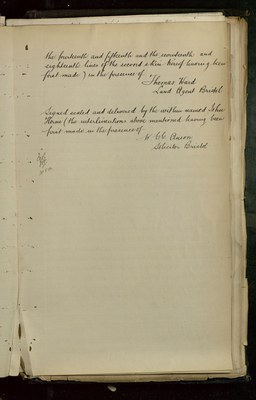 the fourteenth and fifteenth and the seventeenth and
eighteenth lines of the second skin hereof having been
first made) in the presence of
Thomas Ward
Land Agent Bristol
Signed sealed and delivered by the within named John
Howe (the interlineations above mentioned having been
first made in the presence of
W
Solicitor Bristol